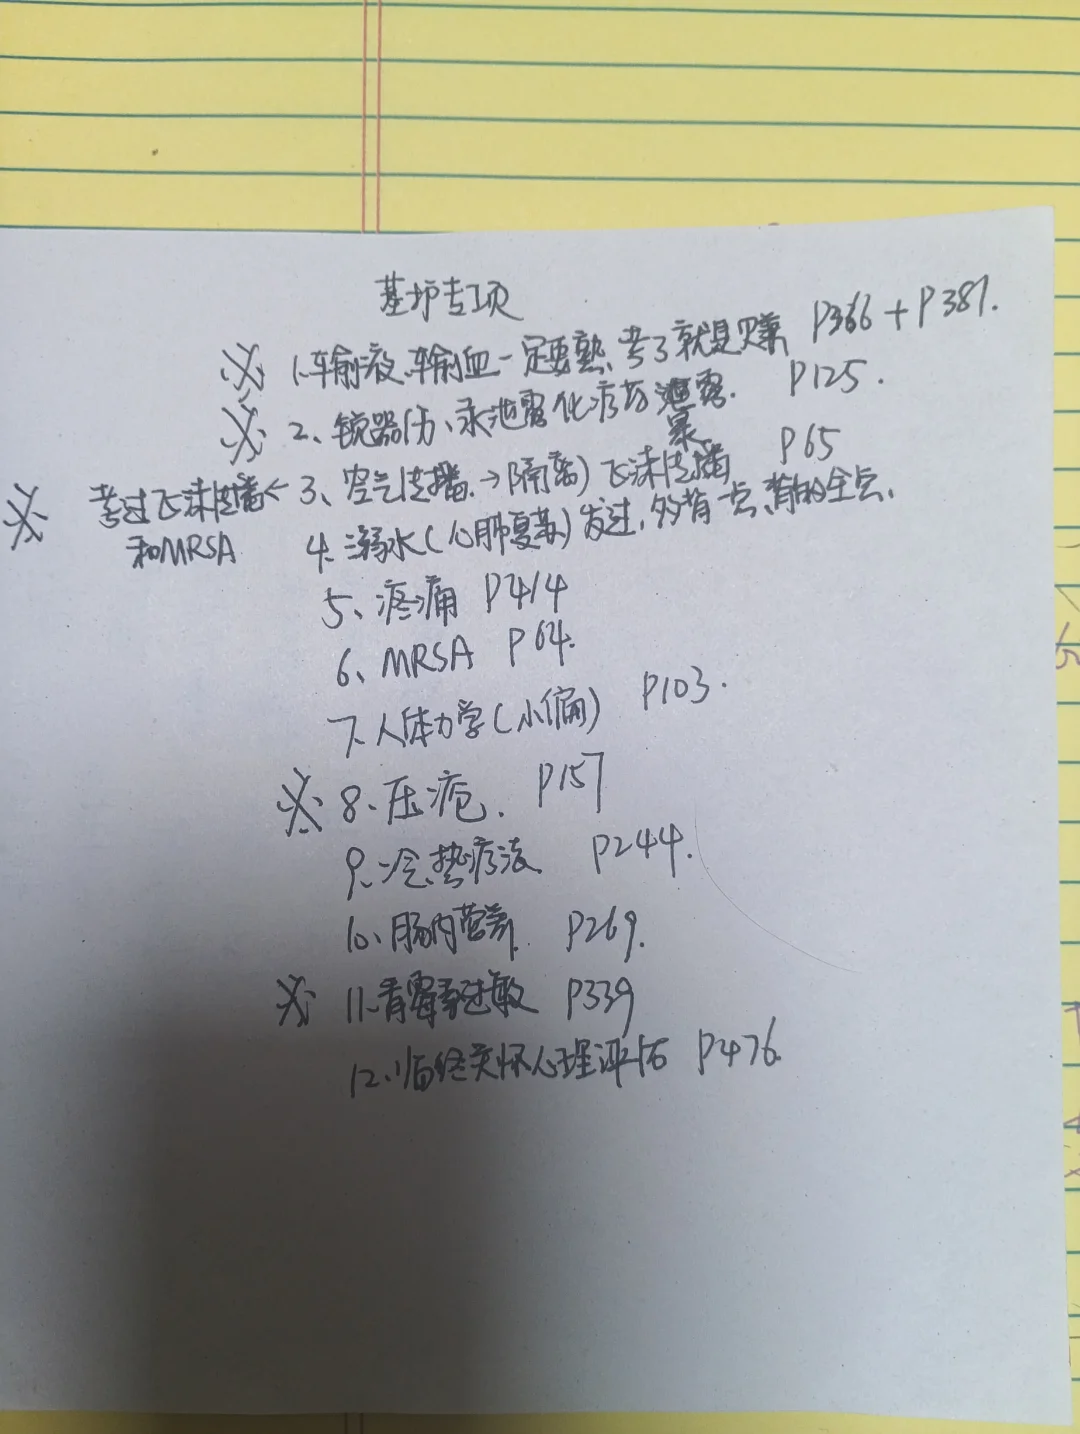 基护专项
※ 1.输液、输血一定要熟、考了就是赚 P366+P387.
※ 2、锐器伤、 化疗药 暴露. P125.
※ 考过飞沫传播← 3、空气传播.→隔离) 飞沫传播 P65
和MRSA
4、溺水(心肺复苏)发过,多背一点、背的全点、
5、疼痛 P414
6、MRSA P64.
7、人体力学(小偏) P103.
※ 8、压疮. P157
9、冷、热疗法 P244.
10、肠内营养. P269.
※ 11.青霉素过敏 P339
12、临终关怀心理评估 P476.